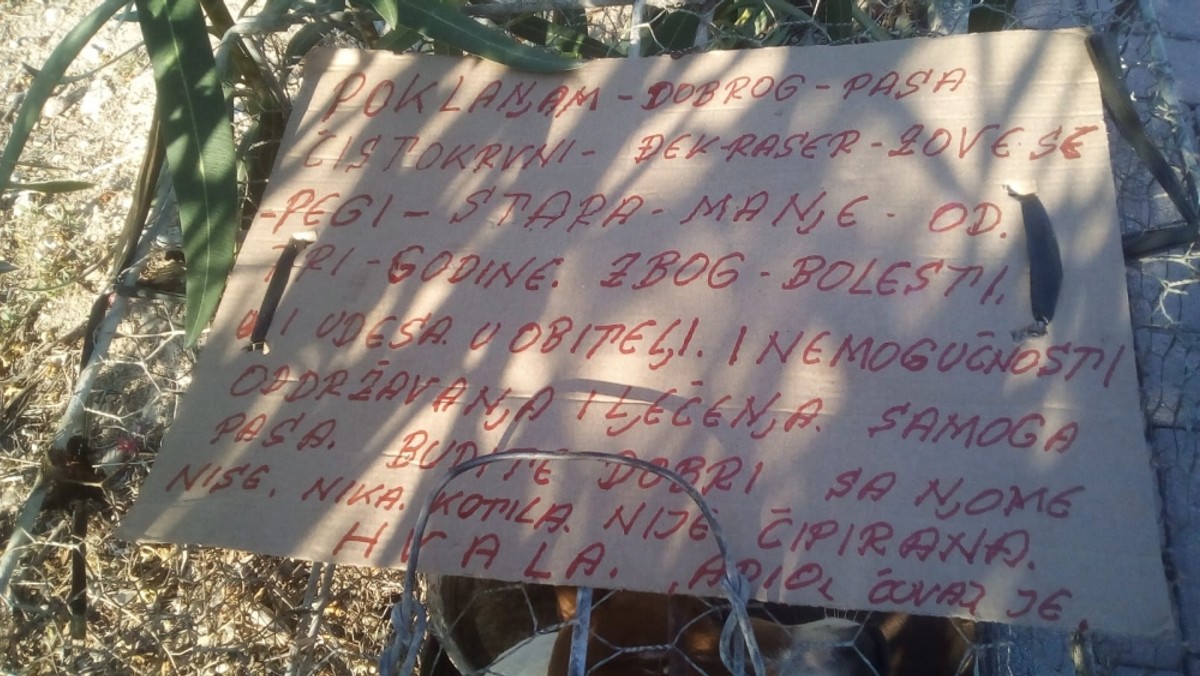 POKLANJAM - DOBROG - PASA
ČISTOKRVNI - ĐEK-RASER - ZOVE SE
- PEGI - STARA - MANJE - OD.
TRI - GODINE. ZBOG - BOLESTI.
I UDESA. U OBITELJI. I NEMOGUČNOSTI
ODDRŽAVANJA I LJEČENJA. SAMOGA
PASA. BUDITE DOBRI SA NJOME
NISE. NIKA. KOTILA. NIJE ČIPIRANA.
HVALA. ČUVAJ JE.